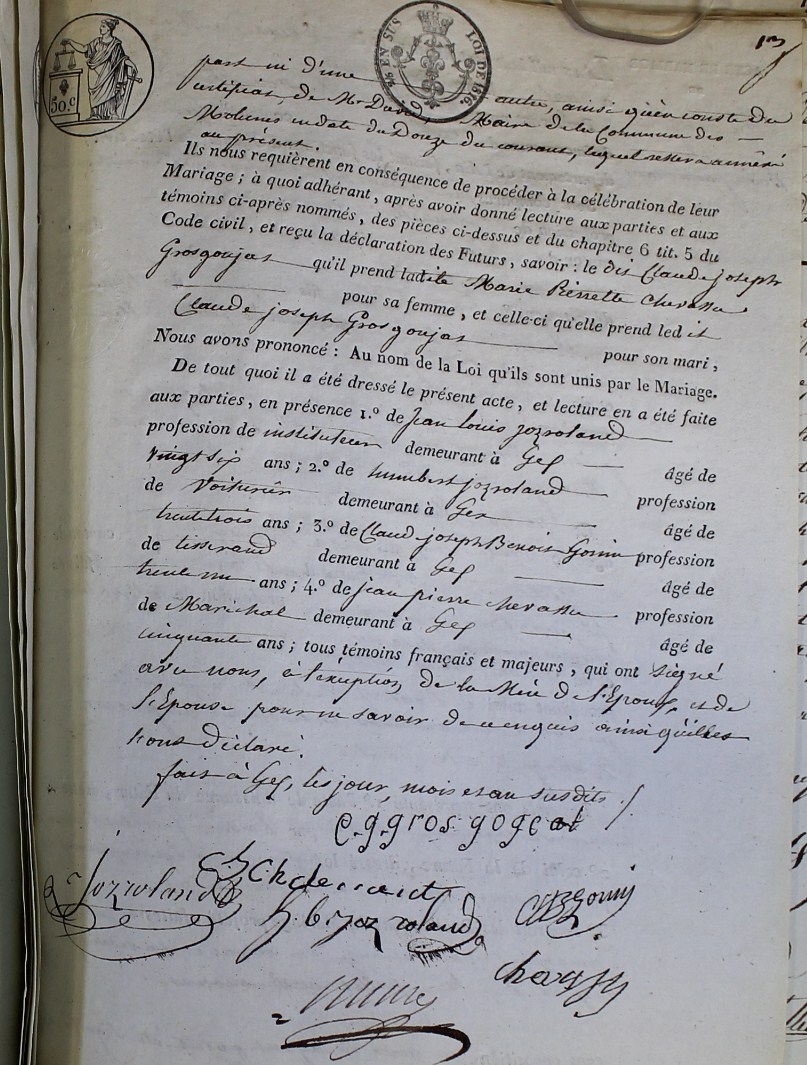 13
50.c
EN SUS LOI DE 1816.
part ni d'une autre, ainsi qu'en conste du
certificat de Mr David, Maire de la Commune des
Molunes en date du Douze du courant, lequel restera annéxé
au présent.
Ils nous requièrent en conséquence de procéder à la célébration de leur
Mariage ; à quoi adhérant, après avoir donné lecture aux parties et aux
témoins ci-après nommés, des pièces ci-dessus et du chapitre 6 tit. 5 du
Code civil, et reçu la déclaration des Futurs, savoir : le dit Claude joseph
Grosgoujat qu'il prend ladite Marie Pierrette Chevassu
pour sa femme, et celle-ci qu'elle prend led it
Claude joseph Grosgoujat pour son mari,
Nous avons prononcé : Au nom de la Loi qu'ils sont unis par le Mariage.
De tout quoi il a été dressé le présent acte, et lecture en a été faite
aux parties, en présence 1.º de Jean Louis jozroland
profession de instituteur demeurant à Gex âgé de
vingt six ans ; 2.º de humbert jozroland profession
de Voiturier demeurant à Gex âgé de
trente trois ans ; 3.º de Claud joseph Benoit Gonin profession
de tisserand demeurant à Gex âgé de
trente un ans ; 4.º de jean pierre chevassu profession
de Maréchal demeurant à Gex âgé de
cinquante ans ; tous témoins français et majeurs, qui ont signé
avec nous, à l'exception de la Mère de l'Epoux, et de
l'Epouse pour ne savoir de ce enquis ainsi qu'elles
l'ont déclaré.
fait à Gex, les jour, mois et an susdits.
C.g.gros gogeat
Jozroland
h. b. joz roland
CJB gonin
chevassu